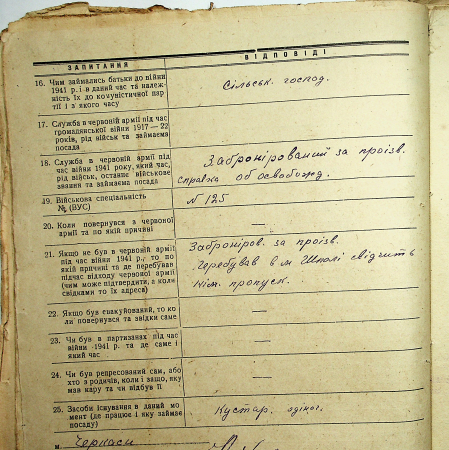 ЗАПИТАННЯ
ВІДПОВІДІ
16. Чим займались батьки до війни
1941 р. і в даний час та належ-
ність їх до комуністичної пар-
тії і з якого часу
Сільськ. господ.
17. Служба в червоній армії під час
громадянської війни 1917—22
років, рід військ та займаєма
посада
18. Служба в червоній армії під
час війни 1941 року, який час,
рід військ, останнє військове
звання та займаєма посада
Забронірований за произв.
Справка об освобожд.
19. Військова спеціяльність
№ (ВУС)
N 125
20. Коли повернувся з червоної
армії та по якій причині
—
21. Якщо не був в червоній армії
під час війни 1941 р., то по
якій причині та де перебував
підчас відходу червоної армії
(чим може підтвердити, а коли
свідками то їх адреса)
Заброніров. за произв.
Перебував в м. Шполі свідчить
Нім. пропуск.
22. Якщо був евакуйований, то ко-
ли повернувся та звідки саме
—
23. Чи був в партизанах під час
війни 1941 р. та де саме і
який час
—
24. Чи був репресований сам, або
хто з родичів, коли і защо, яку
мав кару та чи відбув її
—
25. Засоби існування в даний мо-
мент (де працює і яку займає
посаду)
Кустар.
м. Черкаси